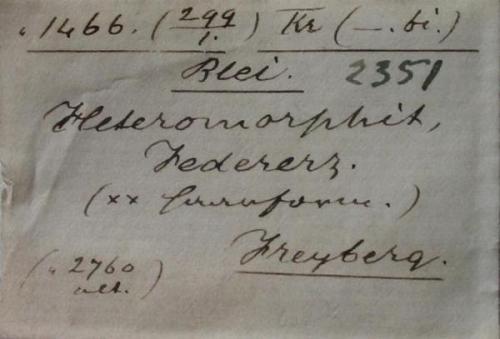 1466. (299/1.) Kr (—. bi.)
Blei. 2351
Heteromorphit,
Federerz.
(xx haarform.)
Freyberg.
(2760
alt.)